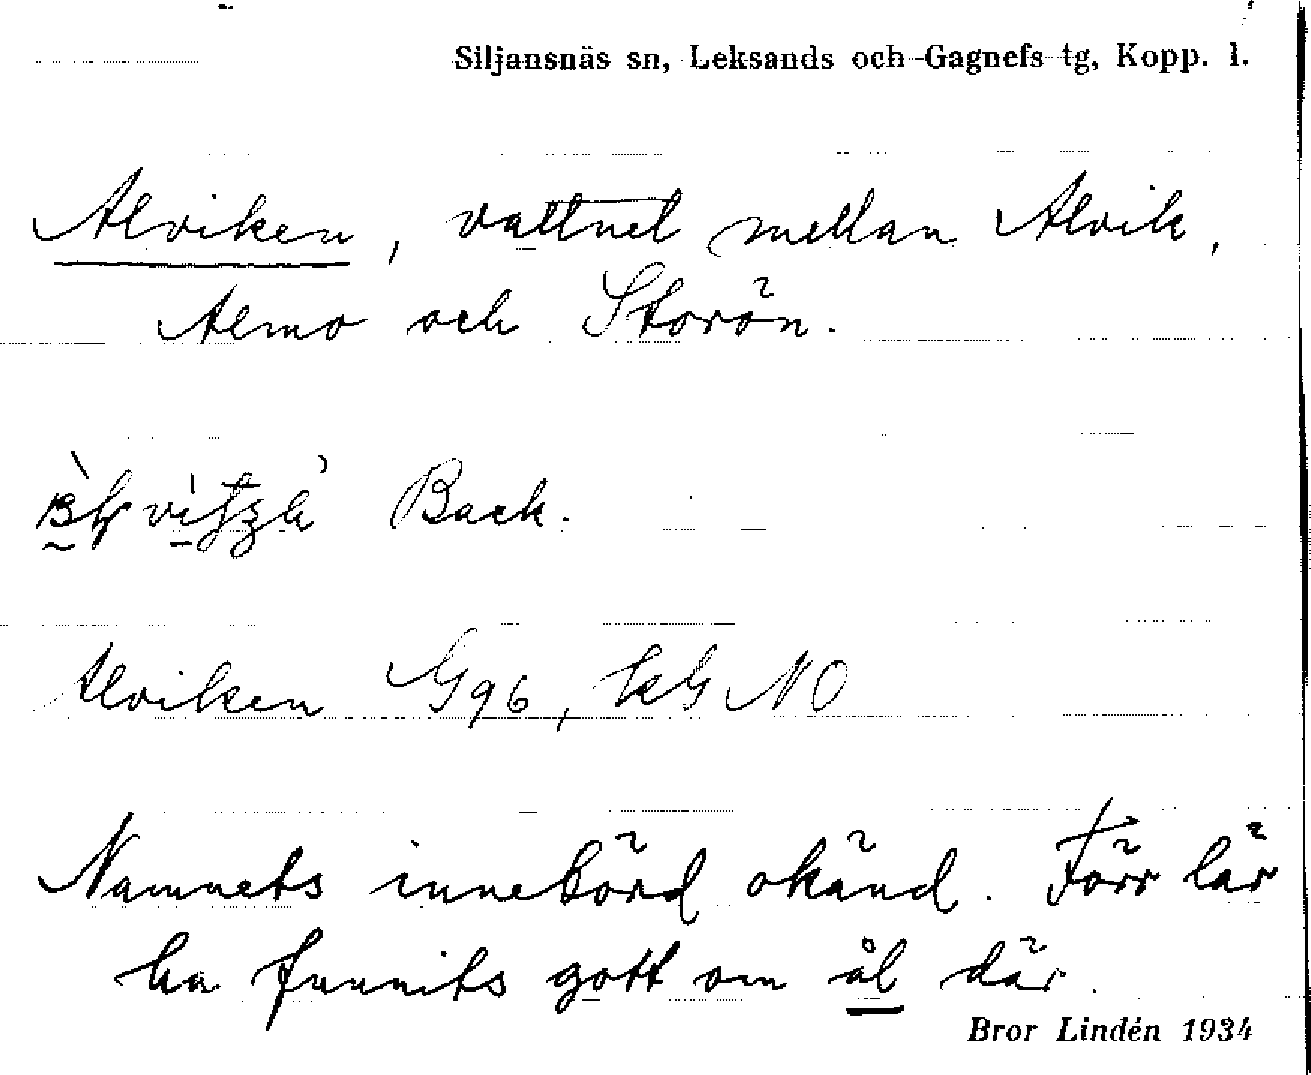 Siljansnäs sn, Leksands och Gagnefs tg, Kopp. l.
Alviken, vattnet mellan Alvik,
Almo och Storön.
Back.
Alviken G96, kG NO
Namnets innebörd okänd. Förr lär
ha funnits gott om ål där.
Bror Lindén 1934